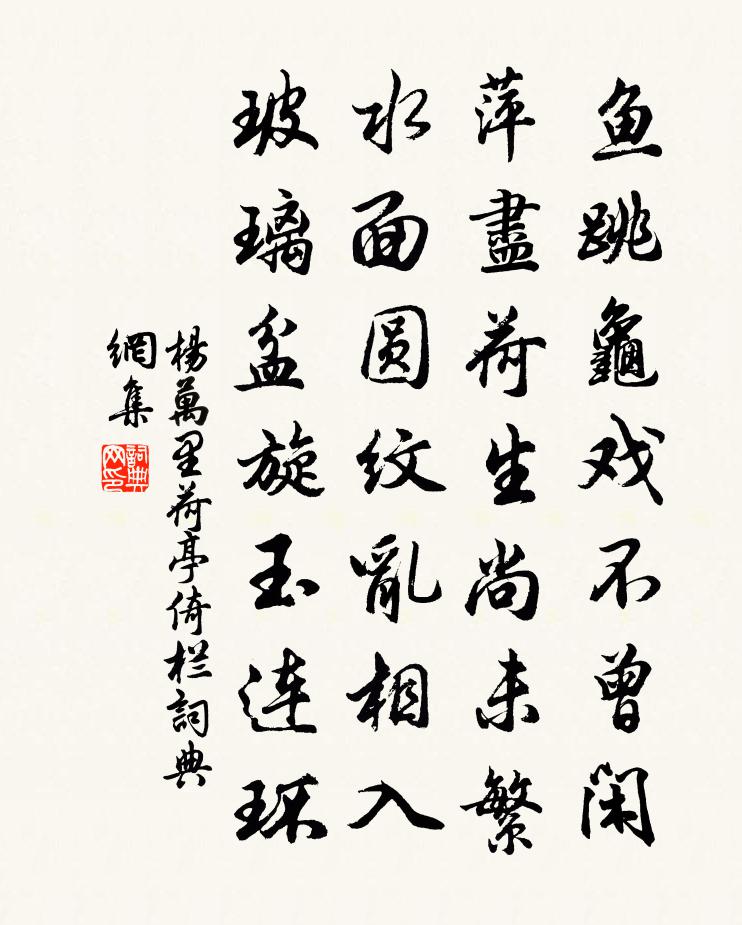 鱼跳龜戏不曾闲
萍盡荷生尚未繁
水面圆纹亂相入
玻璃盆旋玉连环
楊萬里荷亭倚栏詞典
網集
詞典
网印